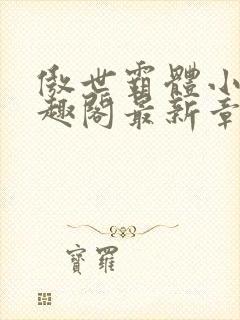 傲世霸體小
趣閣最新章
寶羅